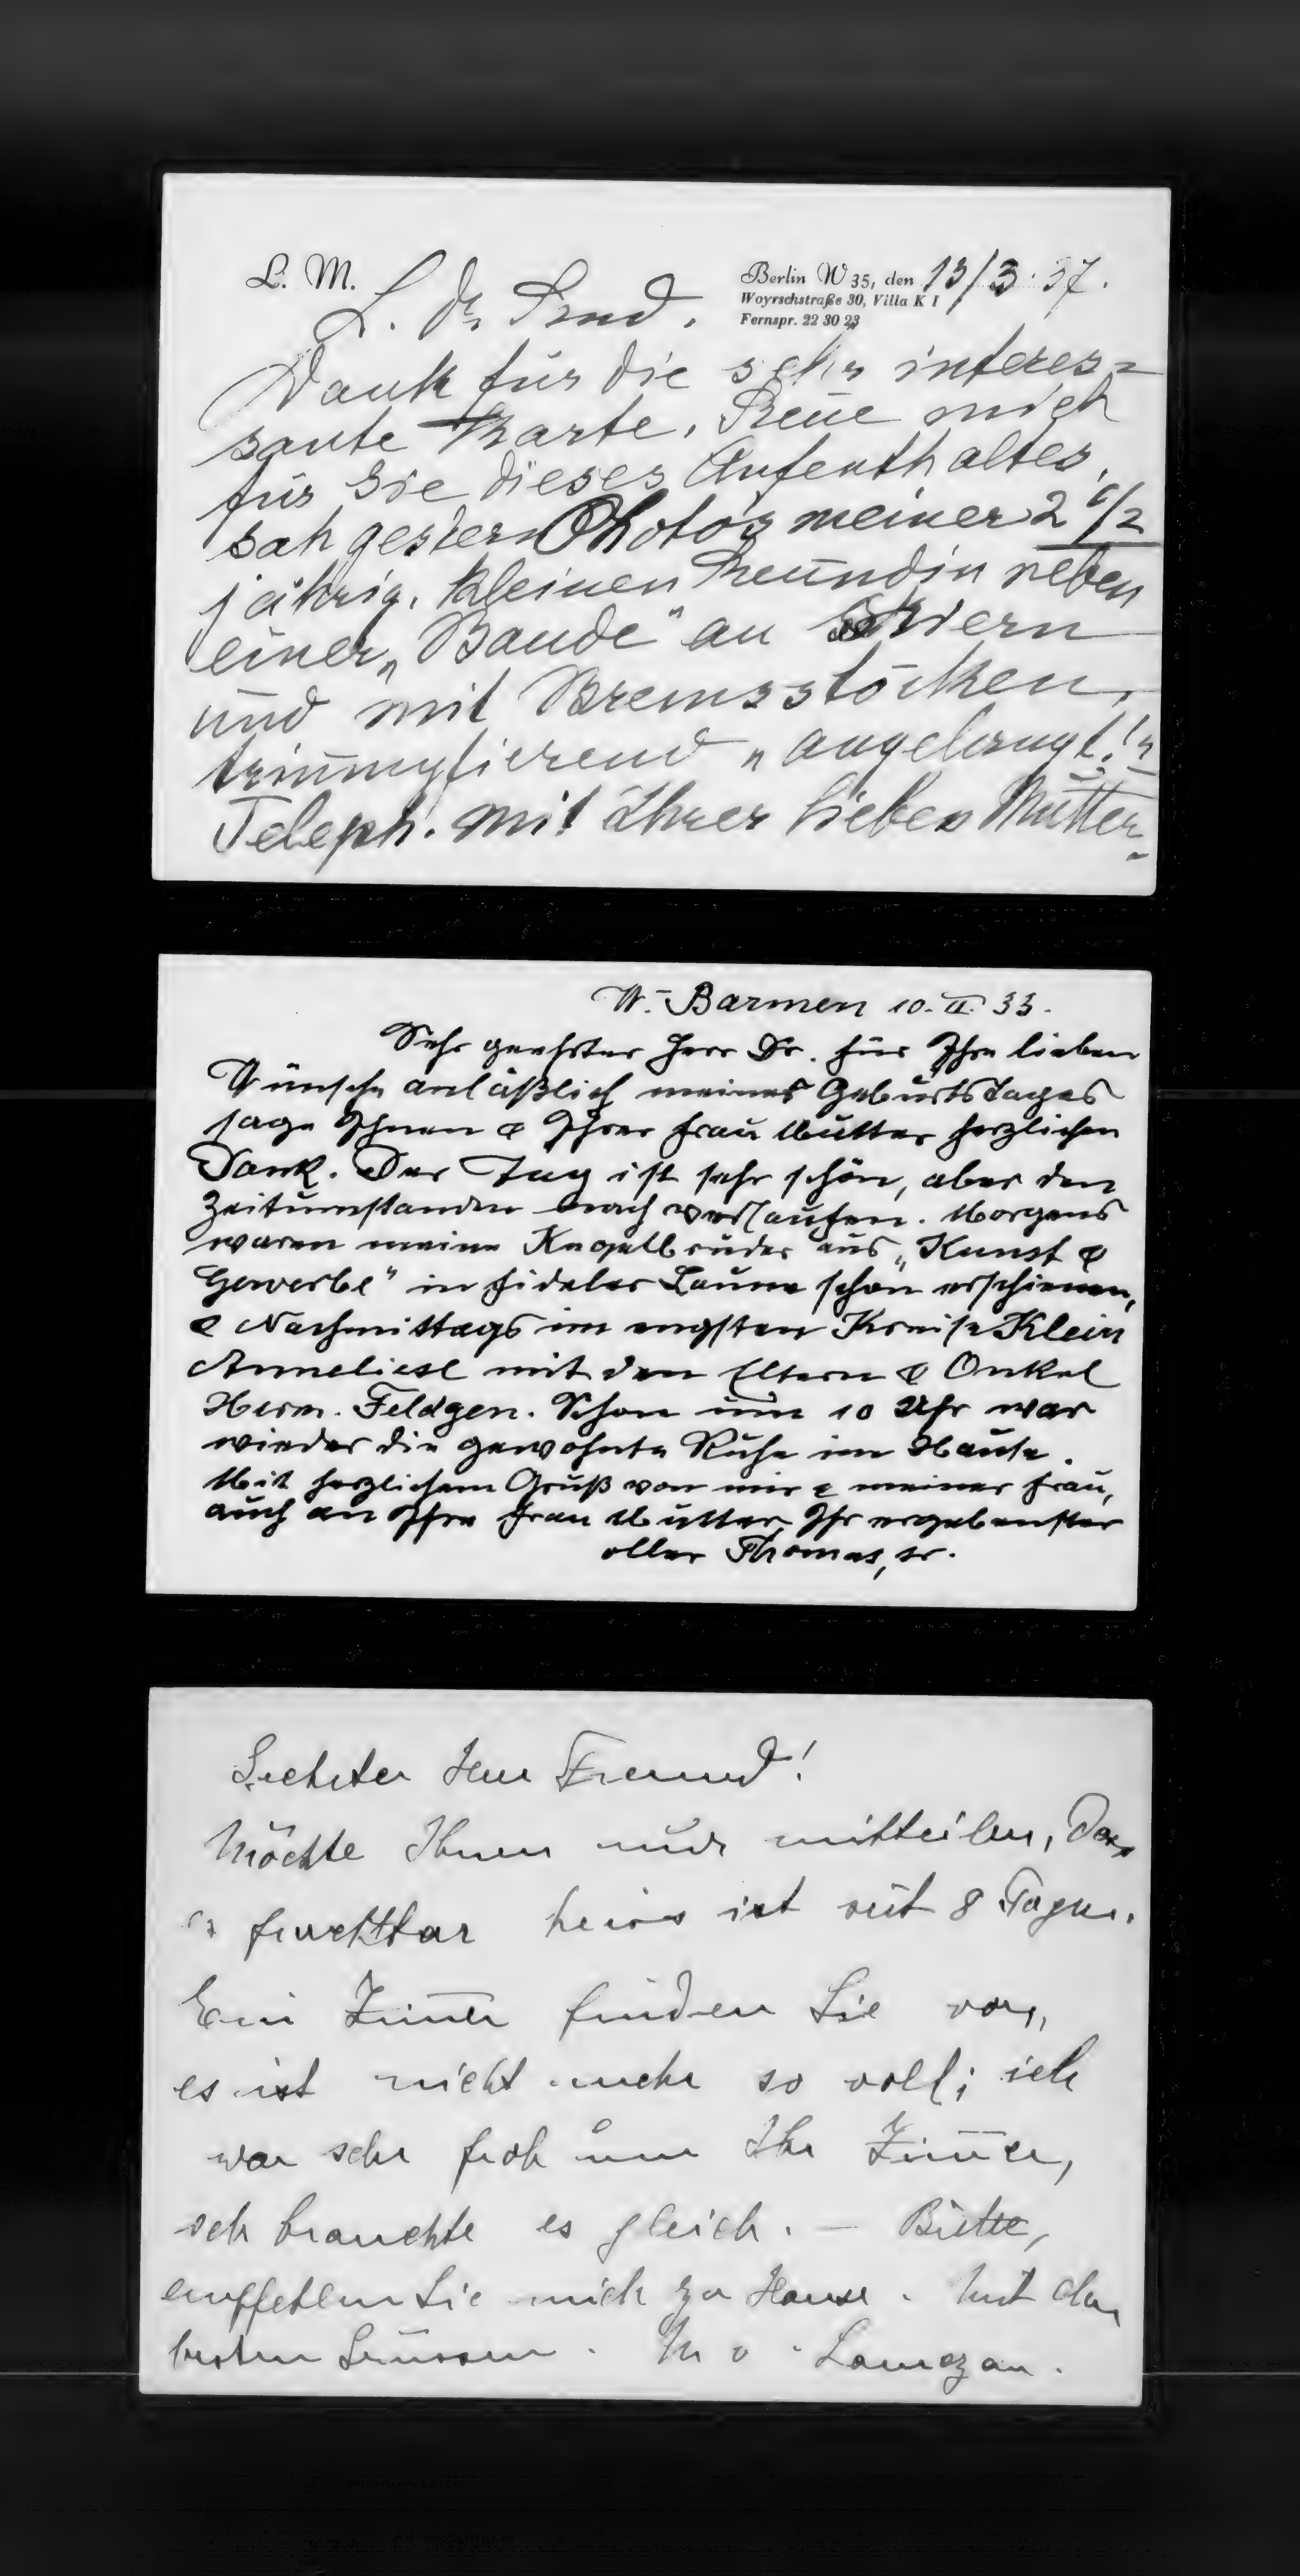 L. M.
Berlin W 35, den 13/3. 37.
Woyrschstraße 30, Villa K I
Fernspr. 22 30 23
L. Dr.
Dank für die sehr interes=
sante Karte. Freue mich
für Sie dieses Aufenthaltes,
sah gestern Photo's meiner 2 1/2
jährig. kleinen Freundin neben
einer „Baude" an Skiern
und mit Bremsstöcken,
triumpfierend
Teleph. mit Ihrer lieben Mutter.
W.-Barmen 10. II. 33.
Sehr geehrter Herr Dr. für Ihre lieben
Wünsche anläßlich meines Geburtstages
sage Ihnen & Ihrer Frau Mutter herzlichen
Dank. Der Tag ist sehr schön, aber den
Zeitumstanden nach verlaufen. Morgens
waren meine Kegelbrüder aus „Kunst &
Gewerbe" in fideler Laune schon erschienen,
& Nachmittags im engsten Kreise Klein
Anneliese mit den Eltern & Onkel
Herm. Feldgen. Schon um 10 Uhr war
wieder die gewohnte Ruhe im Hause.
Mit herzlichem Gruß von mir & meiner Frau,
auch an Ihre Frau Mutter, Ihr ergebenster
oller Thomas, sr.
Geehrter Herr Freund!
Möchte Ihnen nur mitteilen, dass
es furchtbar heiss ist seit 8 Tagen.
Ein Zimmer finden Sie vor,
es ist nicht mehr so voll; ich
war sehr froh um Ihr Zimmer,
ich brauchte es gleich. — Bitte,
empfehlen Sie mich zu Hause. Mit den
besten Grüssen. M v. Lamezan.